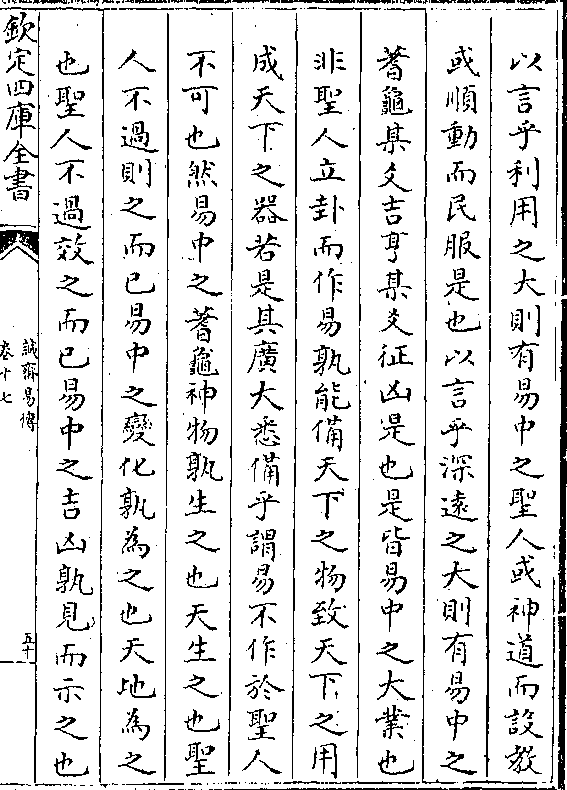 以言乎利用之大則有易中之聖人或神道而設教
或順動而民服是也以言乎深遠之大則有易中之
蓍龜某爻吉亨某爻征凶是也是皆易中之大業也
非聖人立卦而作易孰能備天下之物致天下之用
成天下之器若是其廣大悉備乎謂易不作於聖人
不可也然易中之蓍龜神物孰生之也天生之也聖
人不過則之而已易中之變化孰為之也天地為之
也聖人不過效之而已易中之吉凶孰見而示之也
欽定四庫全書
誠齋易傳
卷十七
五十